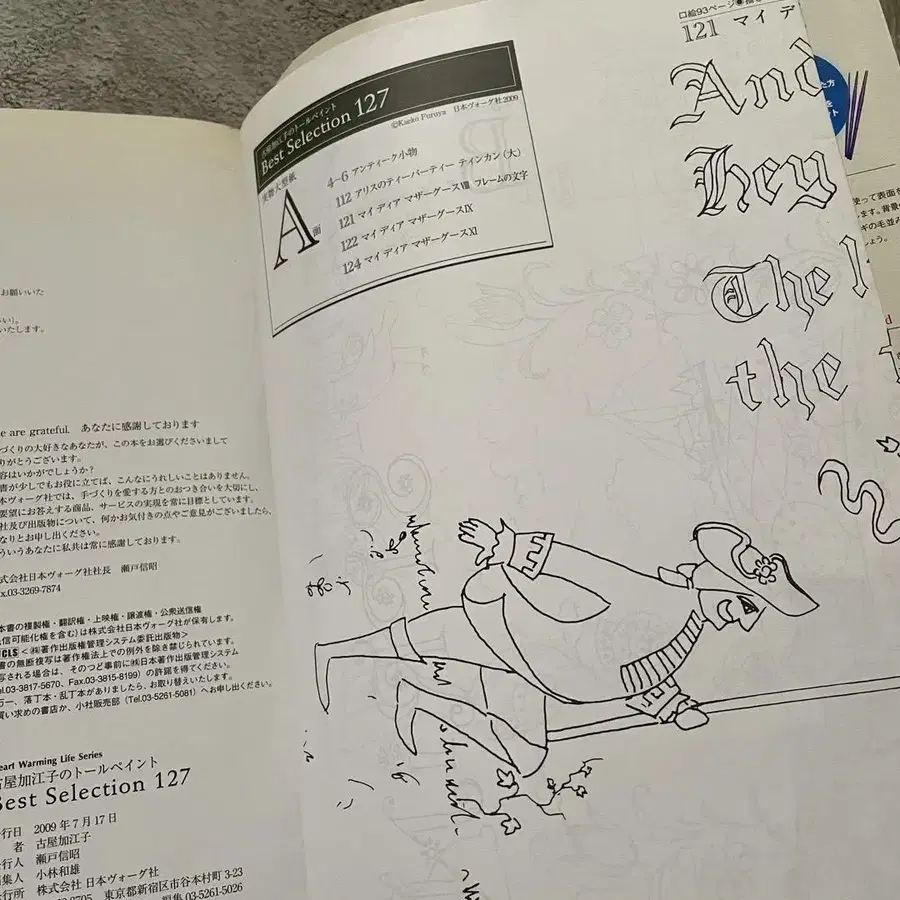 お願いいた
い)。
いたします。
e are grateful. あなたに感謝しております
づくりの大好きなあなたが、この本をお選びくださいまして
りがとうございます。
容はいかがでしょうか?
書が少しでもお役に立てば、こんなにうれしいことはありません。
本ヴォーグ社では、手づくりを愛する方とのおつき合いを大切にし、
要望にお答えする商品、サービスの実現を常に目標としています。
社及び出版物について、何かお気付きの点やご意見がございましたら、
なりとお申し出ください。
ういうあなたに私共は常に感謝しております。
式会社日本ヴォーグ社社長 瀬戸信昭
ax.03-3269-7874
本書の複製権・翻訳権・上映権・譲渡権・公衆送信権
信可能化権を含む)は株式会社日本ヴォーグ社が保有します。
CLS <㈱著作出版権管理システム委託出版物>
書の無断複写は著作権法上での例外を除き禁じられています。
写される場合は、そのつど事前に㈱日本著作出版権管理システム
el.03-3817-5670、Fax.03-3815-8199)の許諾を得てください。
万一、落丁本・乱丁本がありましたら、お取り替えいたします。
買い求めの書店か、小社販売部(Tel.03-5261-5081)へお申し出ください。
eart Warming Life Series
古屋加江子のトールペイント
Best Selection 127
行日 2009年7月17日
者 古屋加江子
行人 瀬戸信昭
集人 小林和雄
行所 株式会社 日本ヴォーグ社
東京都新宿区市谷本村町3-23
編集 03-5261-5026
古屋加江子のトールペイント
Best Selection 127
©Kaeko Furuya 日本ヴォーグ社2009
実物大型紙
A面
4-6 アンティーク小物
112 アリスのティーパーティー ティンカン(大)
121 マイ ディア マザーグースⅧ フレームの文字
122 マイ ディア マザーグースⅨ
124 マイ ディア マザーグースⅪ
口絵93ページ●
121 マイ デ
And
Hey
The l
the
た方
を
ト
使って表面を
ます。背景の
ギの毛並み
しょう。